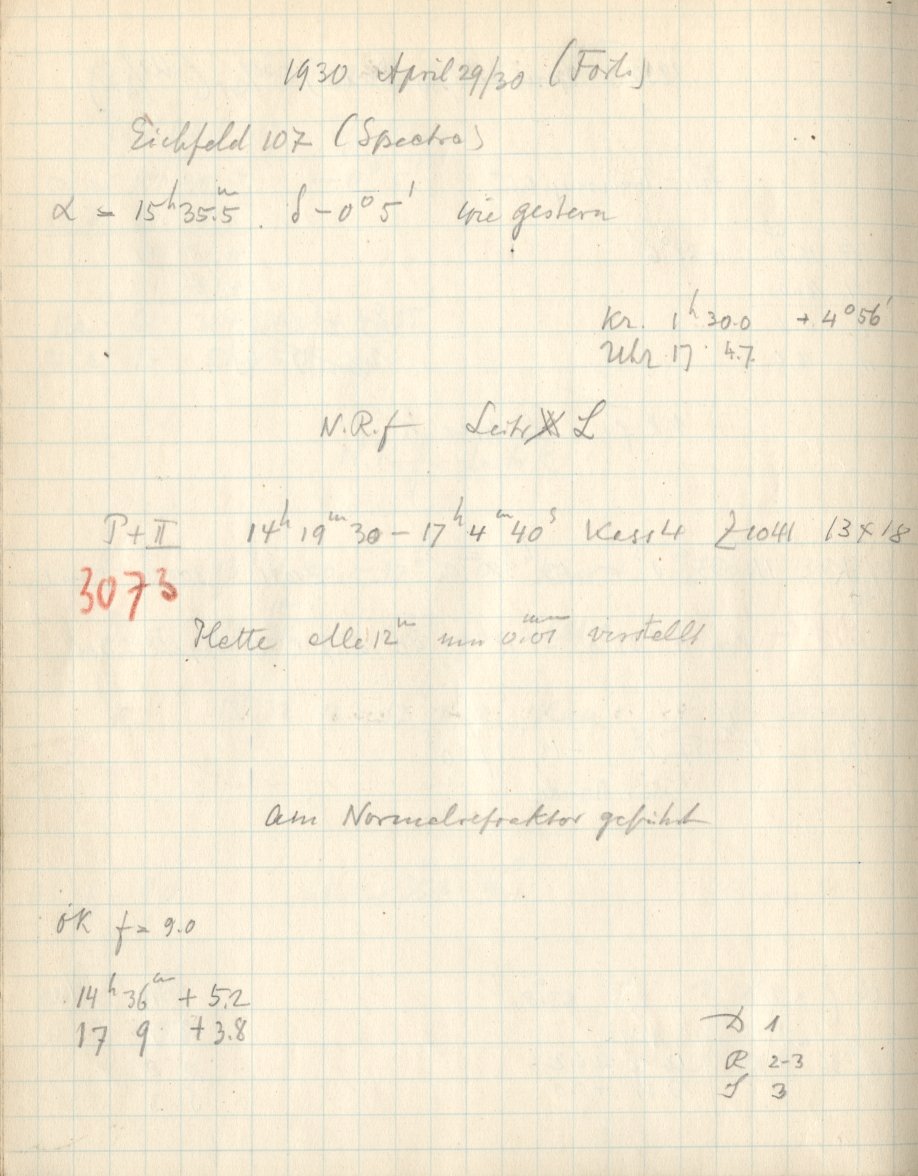 1930 April 29/30 (Forts)
Eichfeld 107 (Spectra)
α = 15h 35.5m δ -0° 5' wie gestern
Kr. 1h 30.0 + 4° 56'
Uhr 17 4.7
N.R.f L
P+II 14h 19m 30 - 17h 4m 40s Kass 4 13 x 18
3073
Platte alle 12m um 0.01mm verstellt
am Normalrefraktor geführt
ÖK f = 9.0
14h 36m + 5.2
17 9 + 3.8
D 1
R 2-3
S 3